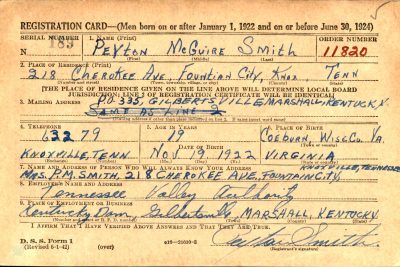 REGISTRATION CARD—(Men born on or after January 1, 1922 and on or before June 30, 1924)
SERIAL NUMBER 1. NAME (Print) ORDER NUMBER
189 PEYTON McGUIRE SMITH 11820
(First) (Middle) (Last)
2. PLACE OF RESIDENCE (Print)
218 CHEROKEE AVE, FOUNTIAN CITY, KNOX TENN
(Number and street) (Town, township, village, or city) (County) (State)
[THE PLACE OF RESIDENCE GIVEN ON THE LINE ABOVE WILL DETERMINE LOCAL BOARD
JURISDICTION; LINE 2 OF REGISTRATION CERTIFICATE WILL BE IDENTICAL]
3. MAILING ADDRESS
P.O. 335, GILBERTSVILLE, MARSHALL, KENTUCKY
SAME AS LINE 2
4. TELEPHONE 5. AGE IN YEARS 6. PLACE OF BIRTH
62279 19 COEBURN, WISE CO. VA.
DATE OF BIRTH
KNOXVILLE, TENN. Nov 19 1922 VIRGINIA
7. NAME AND ADDRESS OF PERSON WHO WILL ALWAYS KNOW YOUR ADDRESS KNOXVILLE, TENNESSEE
MRS. P.M. SMITH, 218 CHEROKEE AVE, FOUNTAIN CITY,
8. EMPLOYER'S NAME AND ADDRESS
Tennessee Valley Authority
9. PLACE OF EMPLOYMENT OR BUSINESS
Kentucky Dam, Gilbertsville, MARSHALL, KENTUCKY.
I AFFIRM THAT I HAVE VERIFIED ABOVE ANSWERS AND THAT THEY ARE TRUE.
D. S. S. Form 1
(Revised 6-1-42) (over) Peyton Smith
(Registrant's signature)